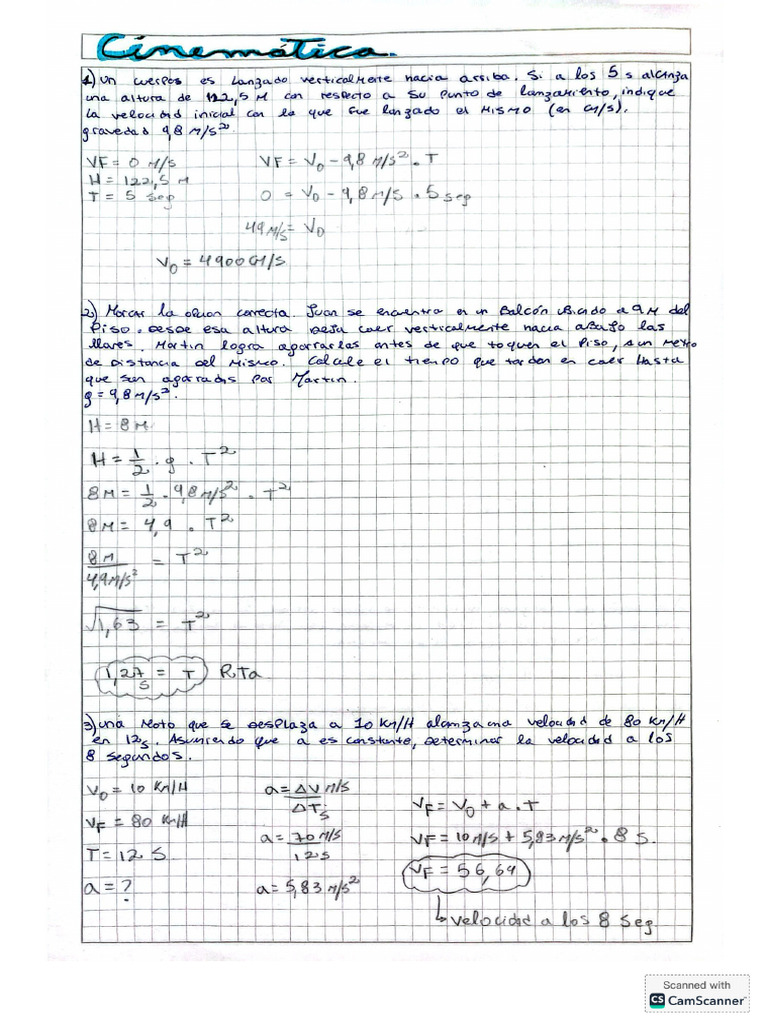 Cinemática.
1) un cuerpos es lanzado verticalmente hacia arriba. Si a los 5 s alcanza
una altura de 122,5 M con respecto a su punto de lanzamiento, indique
la velocidad inicial con la que fue lanzado el mismo (en cm/s).
gravedad 9,8 M/s²
VF = 0 M/s
H = 122,5 M
T = 5 seg
VF = V₀ - 9,8 M/s² . T
0 = V₀ - 9,8 M/s . 5 seg
49 M/s = V₀
V₀ = 4900 cm/s
2) Marcar la opcion correcta. Juan se encuentra en un Balcón ubicado a 9 M del
Piso. Desde esa altura deja caer verticalmente hacia abajo las
llaves. Martin logra agarrarlas antes de que toquen el Piso, a un metro
de distancia del mismo. Calcule el tiempo que tardan en caer Hasta
que son agarradas por Martin.
g = 9,8 M/s².
H = 8 M
H = 1/2 . g . T²
8 M = 1/2 . 9,8 M/s² . T²
8 M = 4,9 . T²
8 M / 4,9 M/s² = T²
√1,63 = T²
1,27 s = T Rta
3) una Moto que se desplaza a 10 KM/H alcanza una velocidad de 80 KM/H
en 12s. Asumiendo que a es constante, Determinar la velocidad a los
8 segundos.
V₀ = 10 KM/H
VF = 80 KM/H
T = 12 S
a = ?
a = ΔV M/s / ΔT s
a = 70 M/s / 12 s
a = 5,83 M/s²
VF = V₀ + a . T
VF = 10 M/s + 5,83 M/s² . 8 s.
VF = 56,64
↳ velocidad a los 8 seg
Scanned with
CS CamScanner